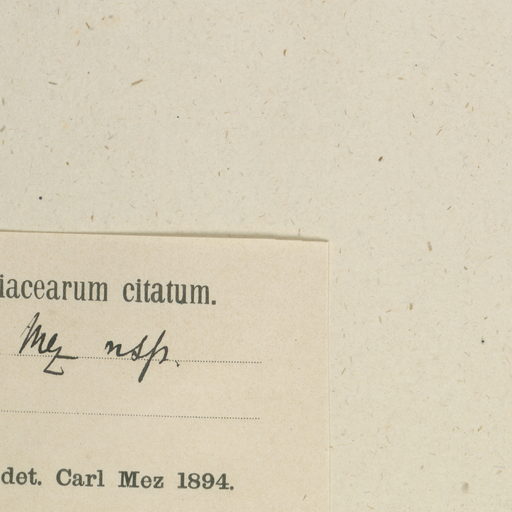 iacearum citatum.
Mez nsp.
det. Carl Mez 1894.